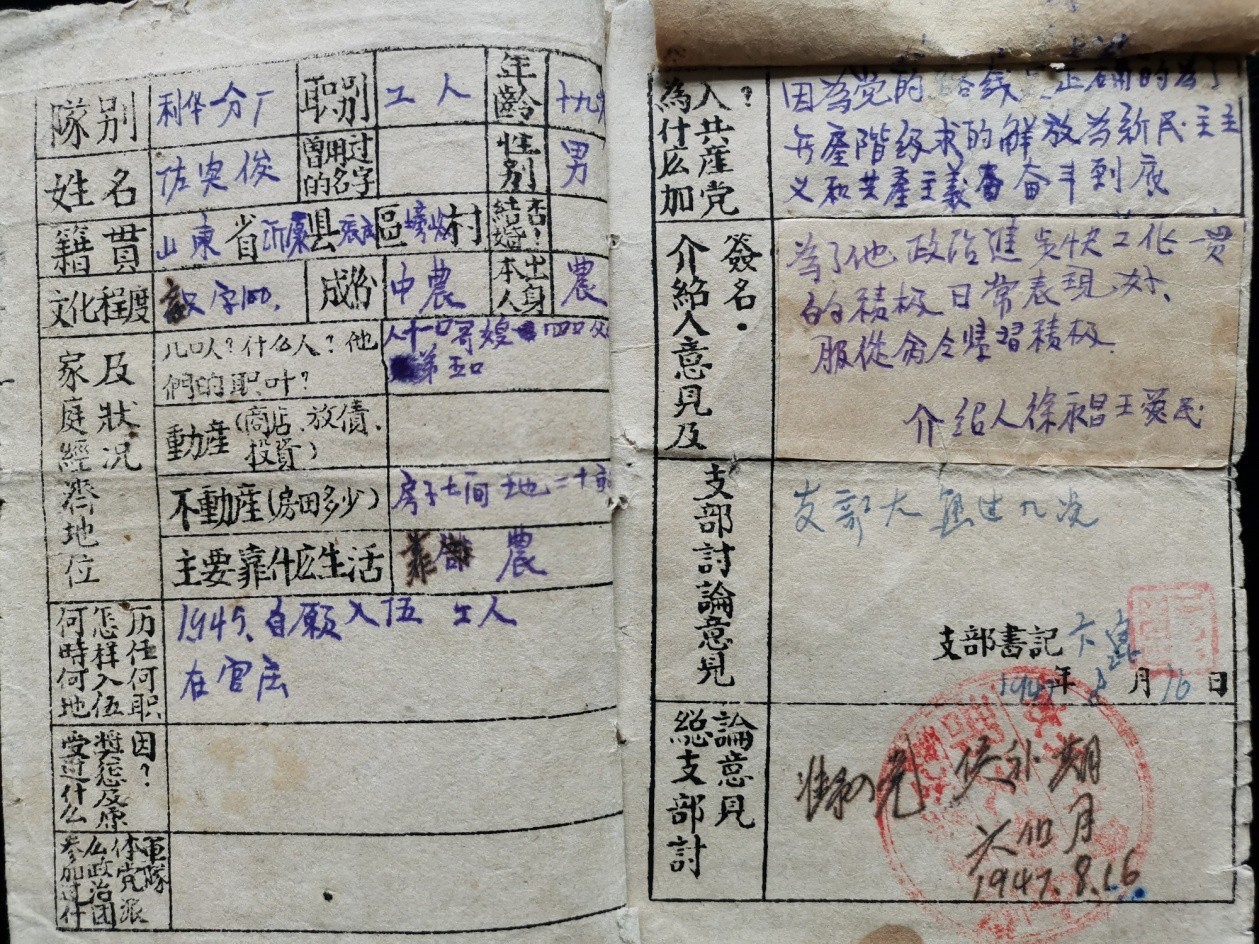 隊别 利华分厂 职别 工人 年齡 十九
姓名 佐 俊 曾用过的名字 性别 男
籍貫 山東省沂 县 區 村 結婚否?
文化程度 字100. 成份 中農 本人出身 農
家庭經濟地位及狀况
几口人?什么人?他們的职叶? 人十一口哥嫂 四口父
弟五口
動產(商店、放債、投資)
不動產(房田多少) 房子七间地二十亩
主要靠什庅生活 靠 農
何時何地怎样入伍历任何职 1945.自願入伍 工人
在官庄
受过什么獎惩及原因?
参加过什么政治团体党派軍隊
為什庅加入共産党?
因為党的路线 正确的为了
無產階級求的解放为新民主主
义和共產主義 奋斗到底
介紹人意見及簽名.
为了他政治進步快工作一贯
的积极日常表現好、
服從命令學習积极.
介绍人徐永昌王 民
支部討論意見
支部大 过
支部書記
194 年8月16日
總支部討論意見
党 候补期
六個月
1947.8.16